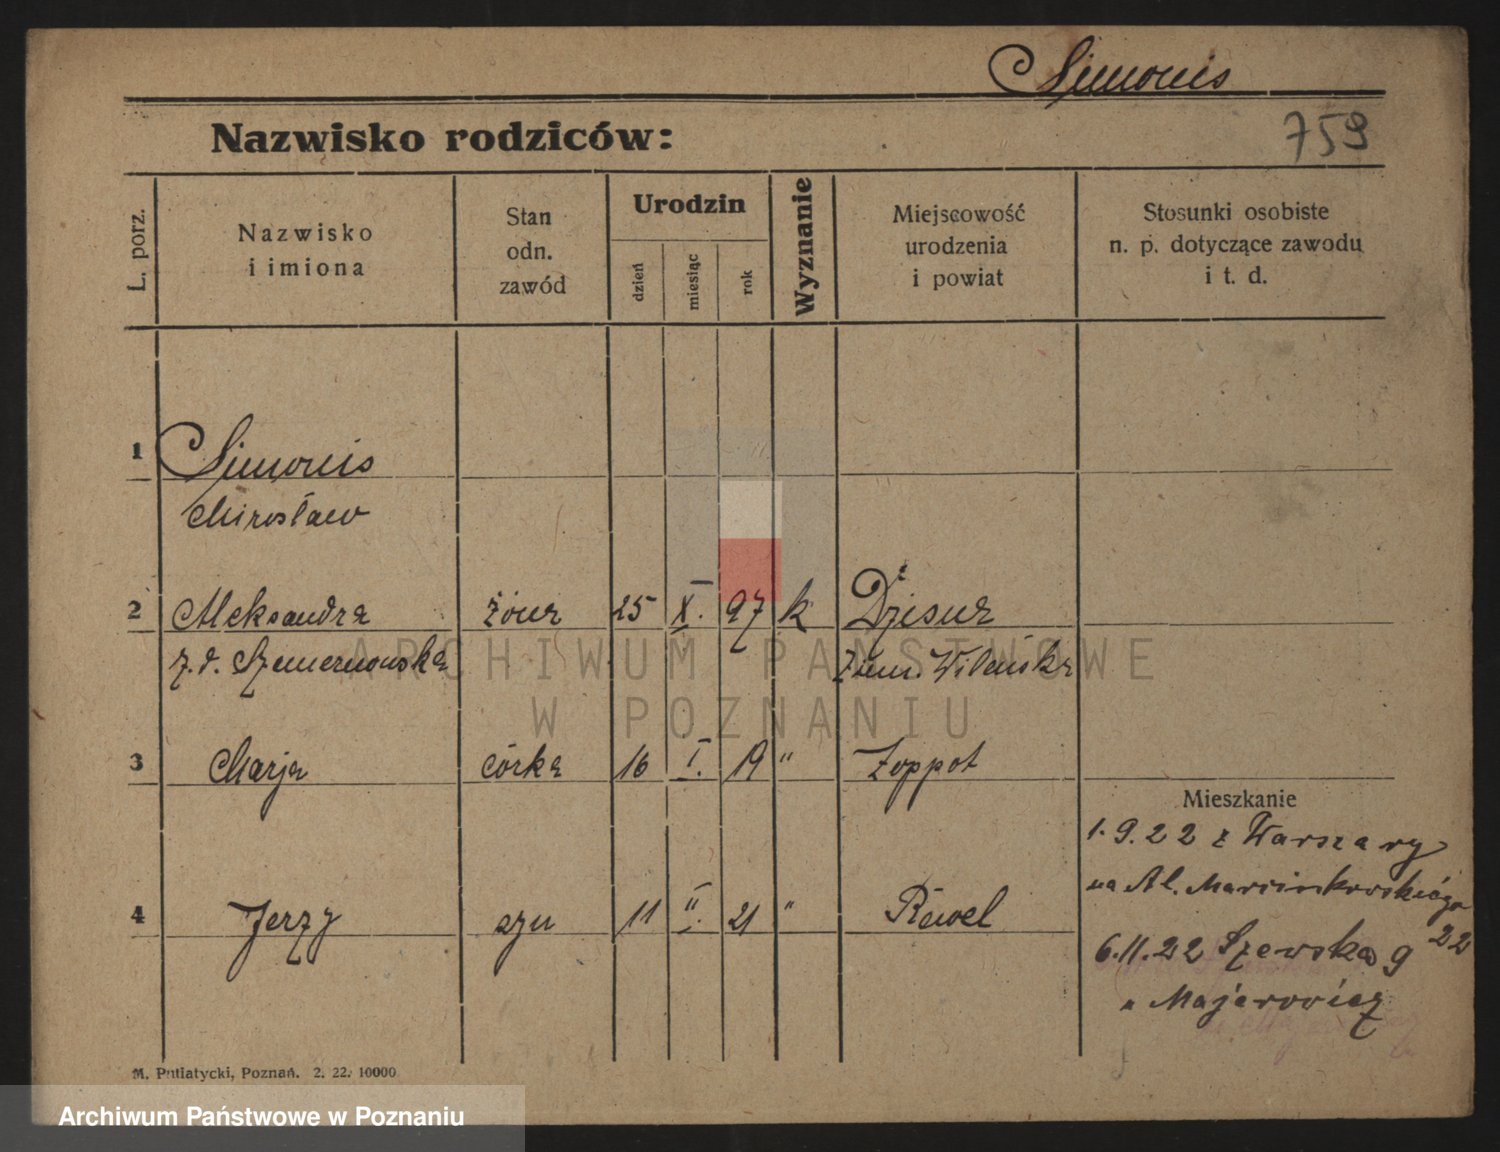 Simonis
Nazwisko rodziców:
759
L. porz.
Nazwisko
i imiona
Stan
odn.
zawód
Urodzin
dzień
miesiąc
rok
Wyznanie
Miejscowość
urodzenia
i powiat
Stosunki osobiste
n. p. dotyczące zawodu
i t. d.
1 Simonis
Mirosław
2 Aleksandra żona 25 X. 97 k Dzisna
z.d. ziem. Wileńska
3 Marja córka 16 I. 19 " Zoppot
4 Jerzy syn 11 II. 21 " Rewel
Mieszkanie
1.9.22 z Warszawy
na Al. Marcinkowskiego
22
6.11.22 Szewska 9
u Majerowicz
M. Putiatycki, Poznań. 2. 22. 10000
ARCHIWUM PAŃSTWOWE
W POZNANIU
Archiwum Państwowe w Poznaniu